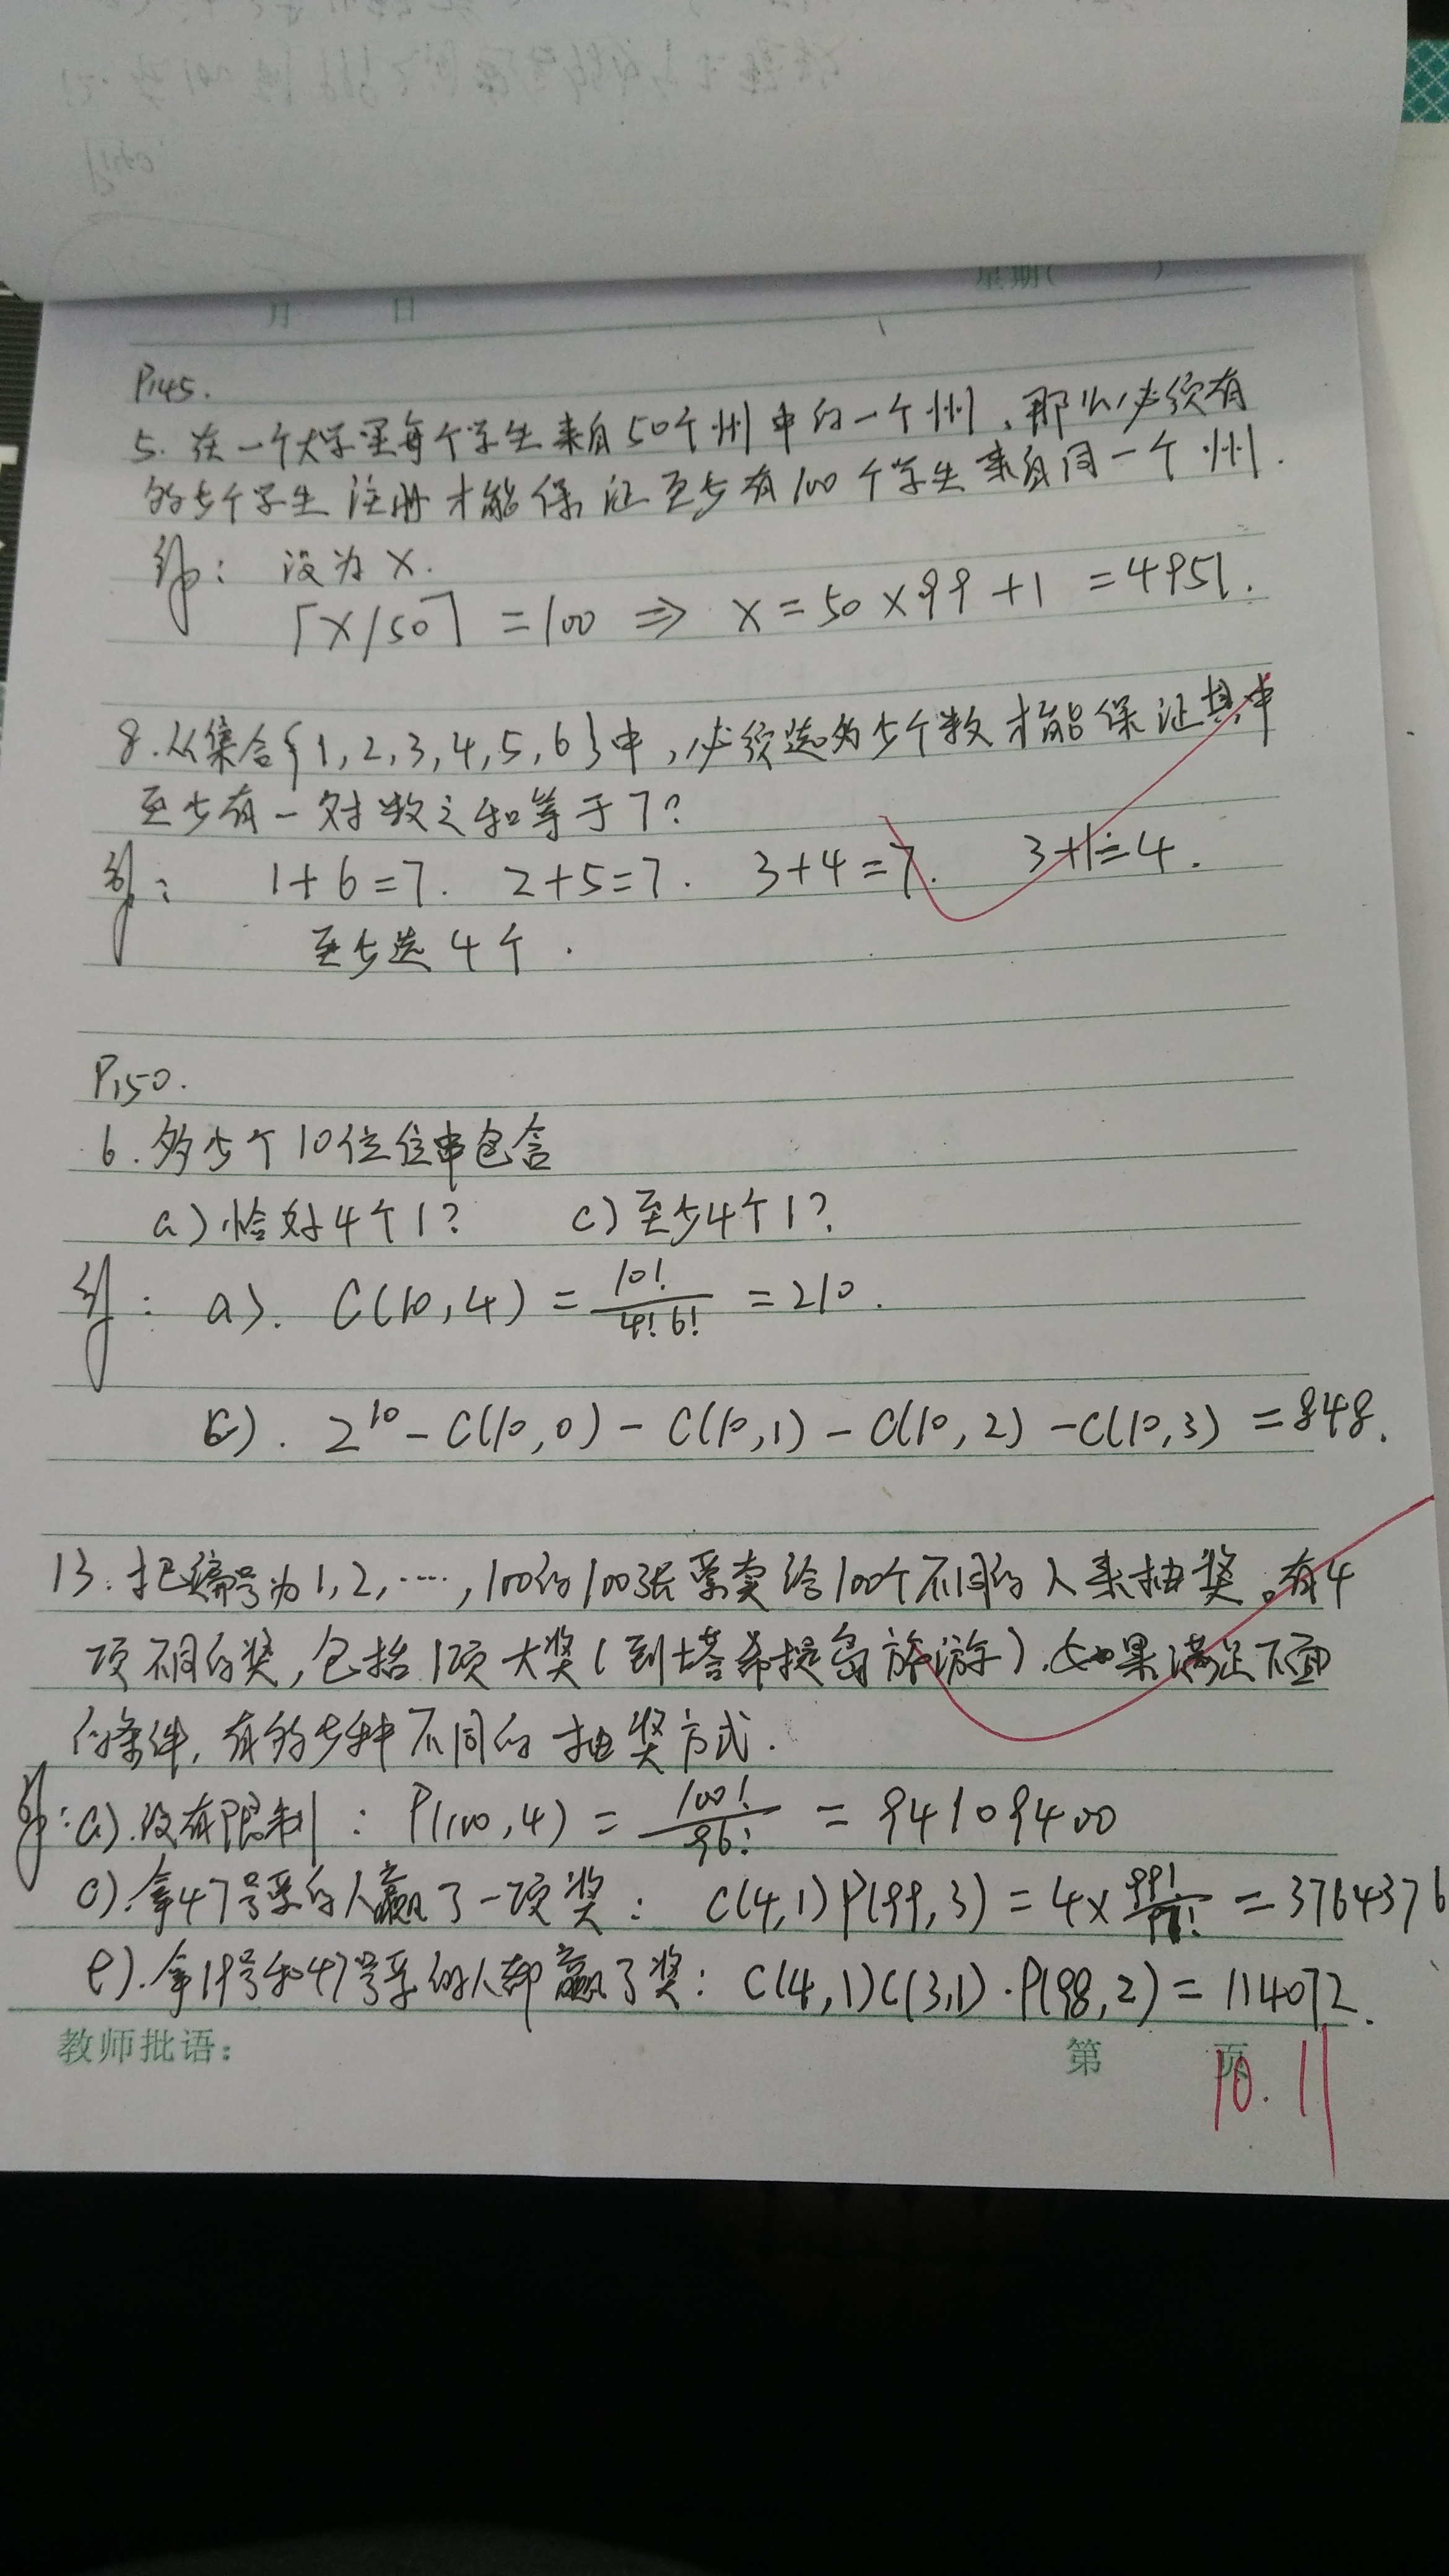 月 日 星期( )
P145.
5. 在一个大学里每个学生来自50个州中的一个州,那么必须有
多少个学生注册才能保证至少有100个学生来自同一个州.
解: 设为X.
⌈X/50⌉ =100 ⇒ X=50×99+1 =4951.
8.从集合{1,2,3,4,5,6}中,必须选多少个数才能保证其中
至少有一对数之和等于7?
解: 1+6=7. 2+5=7. 3+4=7. 3+1=4.
至少选4个.
P150.
6.多少个10位位串包含
a)恰好4个1? c)至少4个1?
解: a). C(10,4) = 10!/4!6! =210.
c). 2^10-C(10,0)-C(10,1)-C(10,2)-C(10,3) =848.
13.把编号为1,2,…,100的100张票卖给100个不同的人来抽奖。有4
项不同的奖,包括1项大奖(到塔希提岛旅游).如果满足下面
的条件,有多少种不同的抽奖方式.
解:a).没有限制: P(100,4) = 100!/96! = 94109400
c).拿47号票的人赢了一项奖: C(4,1)P(99,3)=4×99!/96! =3764376
e).拿19号和47号票的人都赢了奖: C(4,1)C(3,1)·P(98,2)=114072.
教师批语: 第 页
10.11